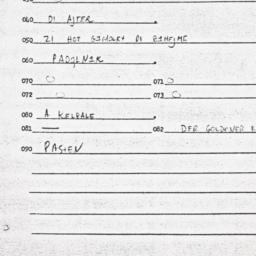 040 DI AJTER
050 ZI HOT GIHOLFN DI BIHEJME
060 PADZENIR
070 071
072 073
080 A KELBALE
081 — 082 DER GOLDENER
090 PASIEN